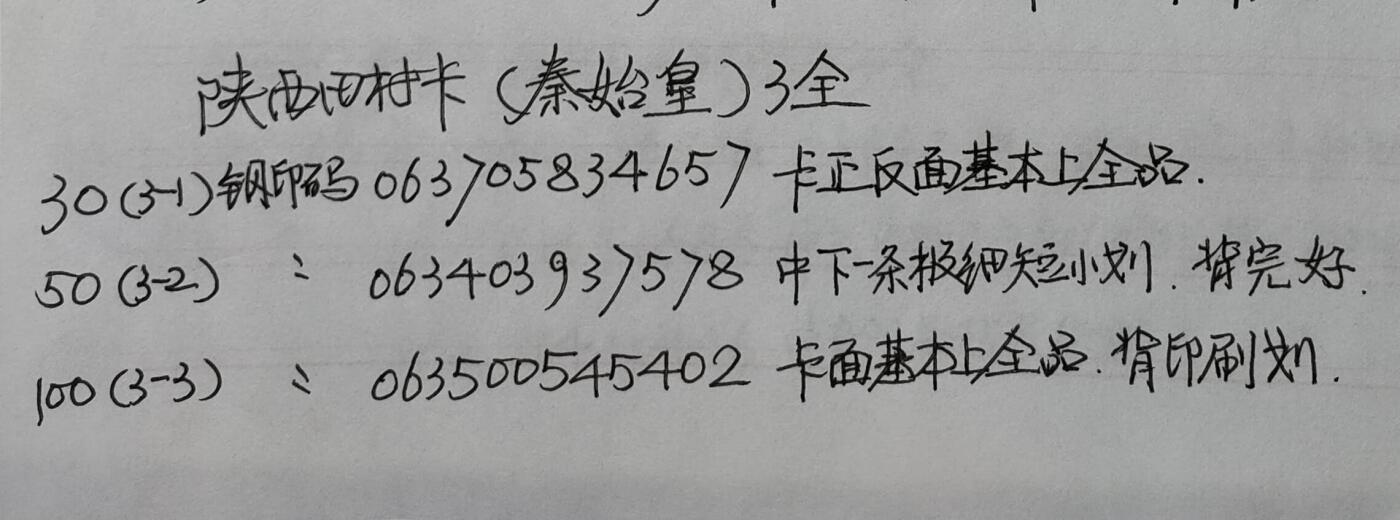 陕西田村卡（秦始皇）3全
30(3-1)钢印码063705834657 卡正反面基本上全品.
50(3-2) : 063403937578 中下一条极细短小划.背完好.
100(3-3) : 063500545402 卡面基本上全品.背印刷划.